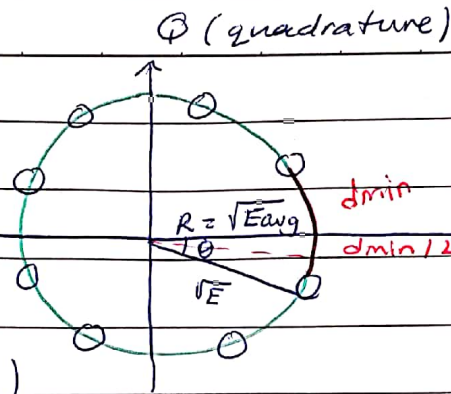 Q (quadrature)
dmin
R = √Eavg
θ
dmin/2
√E
)